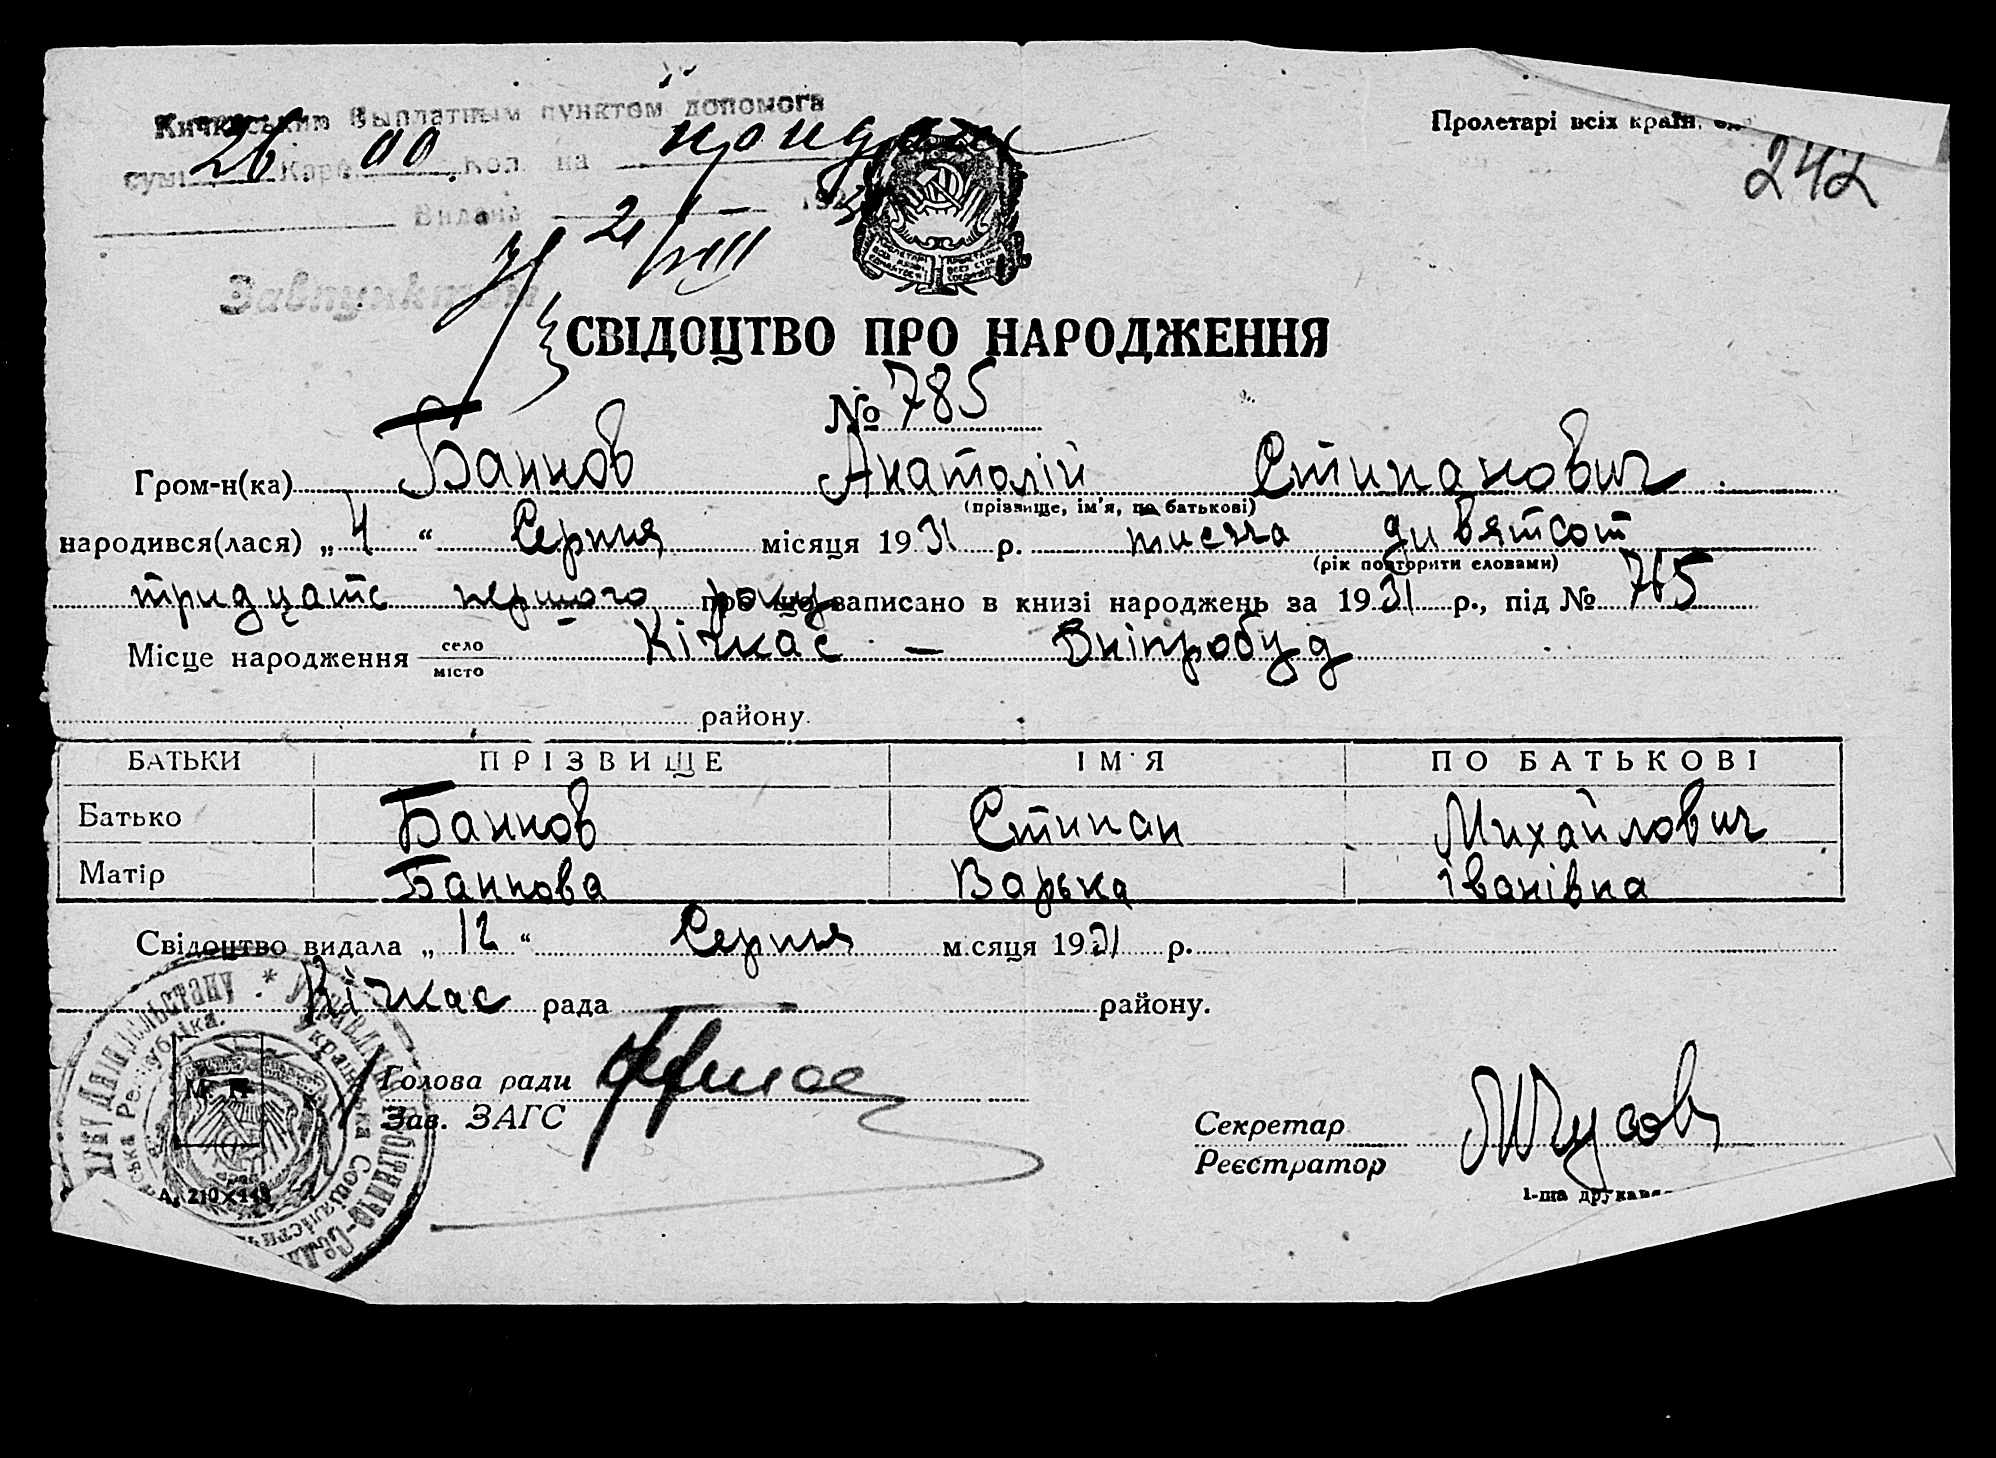 Кичкаським Выплатным пунктом допомога
сумі 26 Карб. 00 Коп. на
Видана 21/VIII 193
Завпунктом
Пролетарі всіх країн,
242
СВІДОЦТВО ПРО НАРОДЖЕННЯ
№ 785
Гром-н(ка) Баннов Анатолій Стипанович
(прізвище, ім'я, по батькові)
народився(лася) „4“ Серпня місяця 1931 р. тисяча дивятсот
(рік повторити словами)
тридцать першого року про що записано в книзі народжень за 1931 р., під № 785
Місце народження село Кічкас — Дніпробуд
місто
району
БАТЬКИ ПРІЗВИЩЕ ІМ'Я ПО БАТЬКОВІ
Батько Баннов Стипан Михайлович
Матір Баннова Варька Іванівна
Свідоцтво видала „12“ Серпня м сяця 1931 р.
Кічкас рада — району.
Голова ради
Зав. ЗАГС
Секретар
Реєстратор
М. П.
А. 210×148
1-ша друкарня